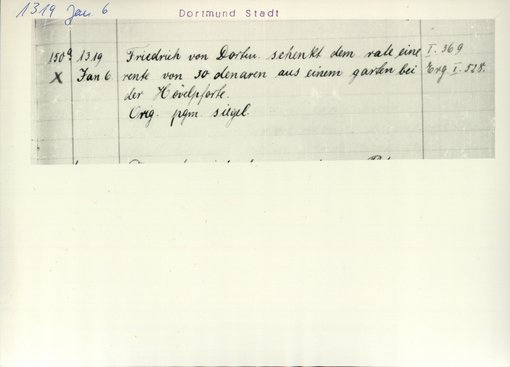 1319 Jan. 6
Dortmund Stadt
150a 1319 Friedrich von Dortm. schenkt dem rate eine I. 369
X Jan 6. rente von 30 denaren aus einem garten bei Erg I. 528.
der Hövelpforte.
Orig. pgm. siegel.